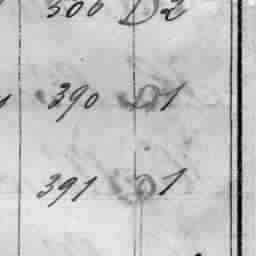 300 D2
390 D1
391 D1